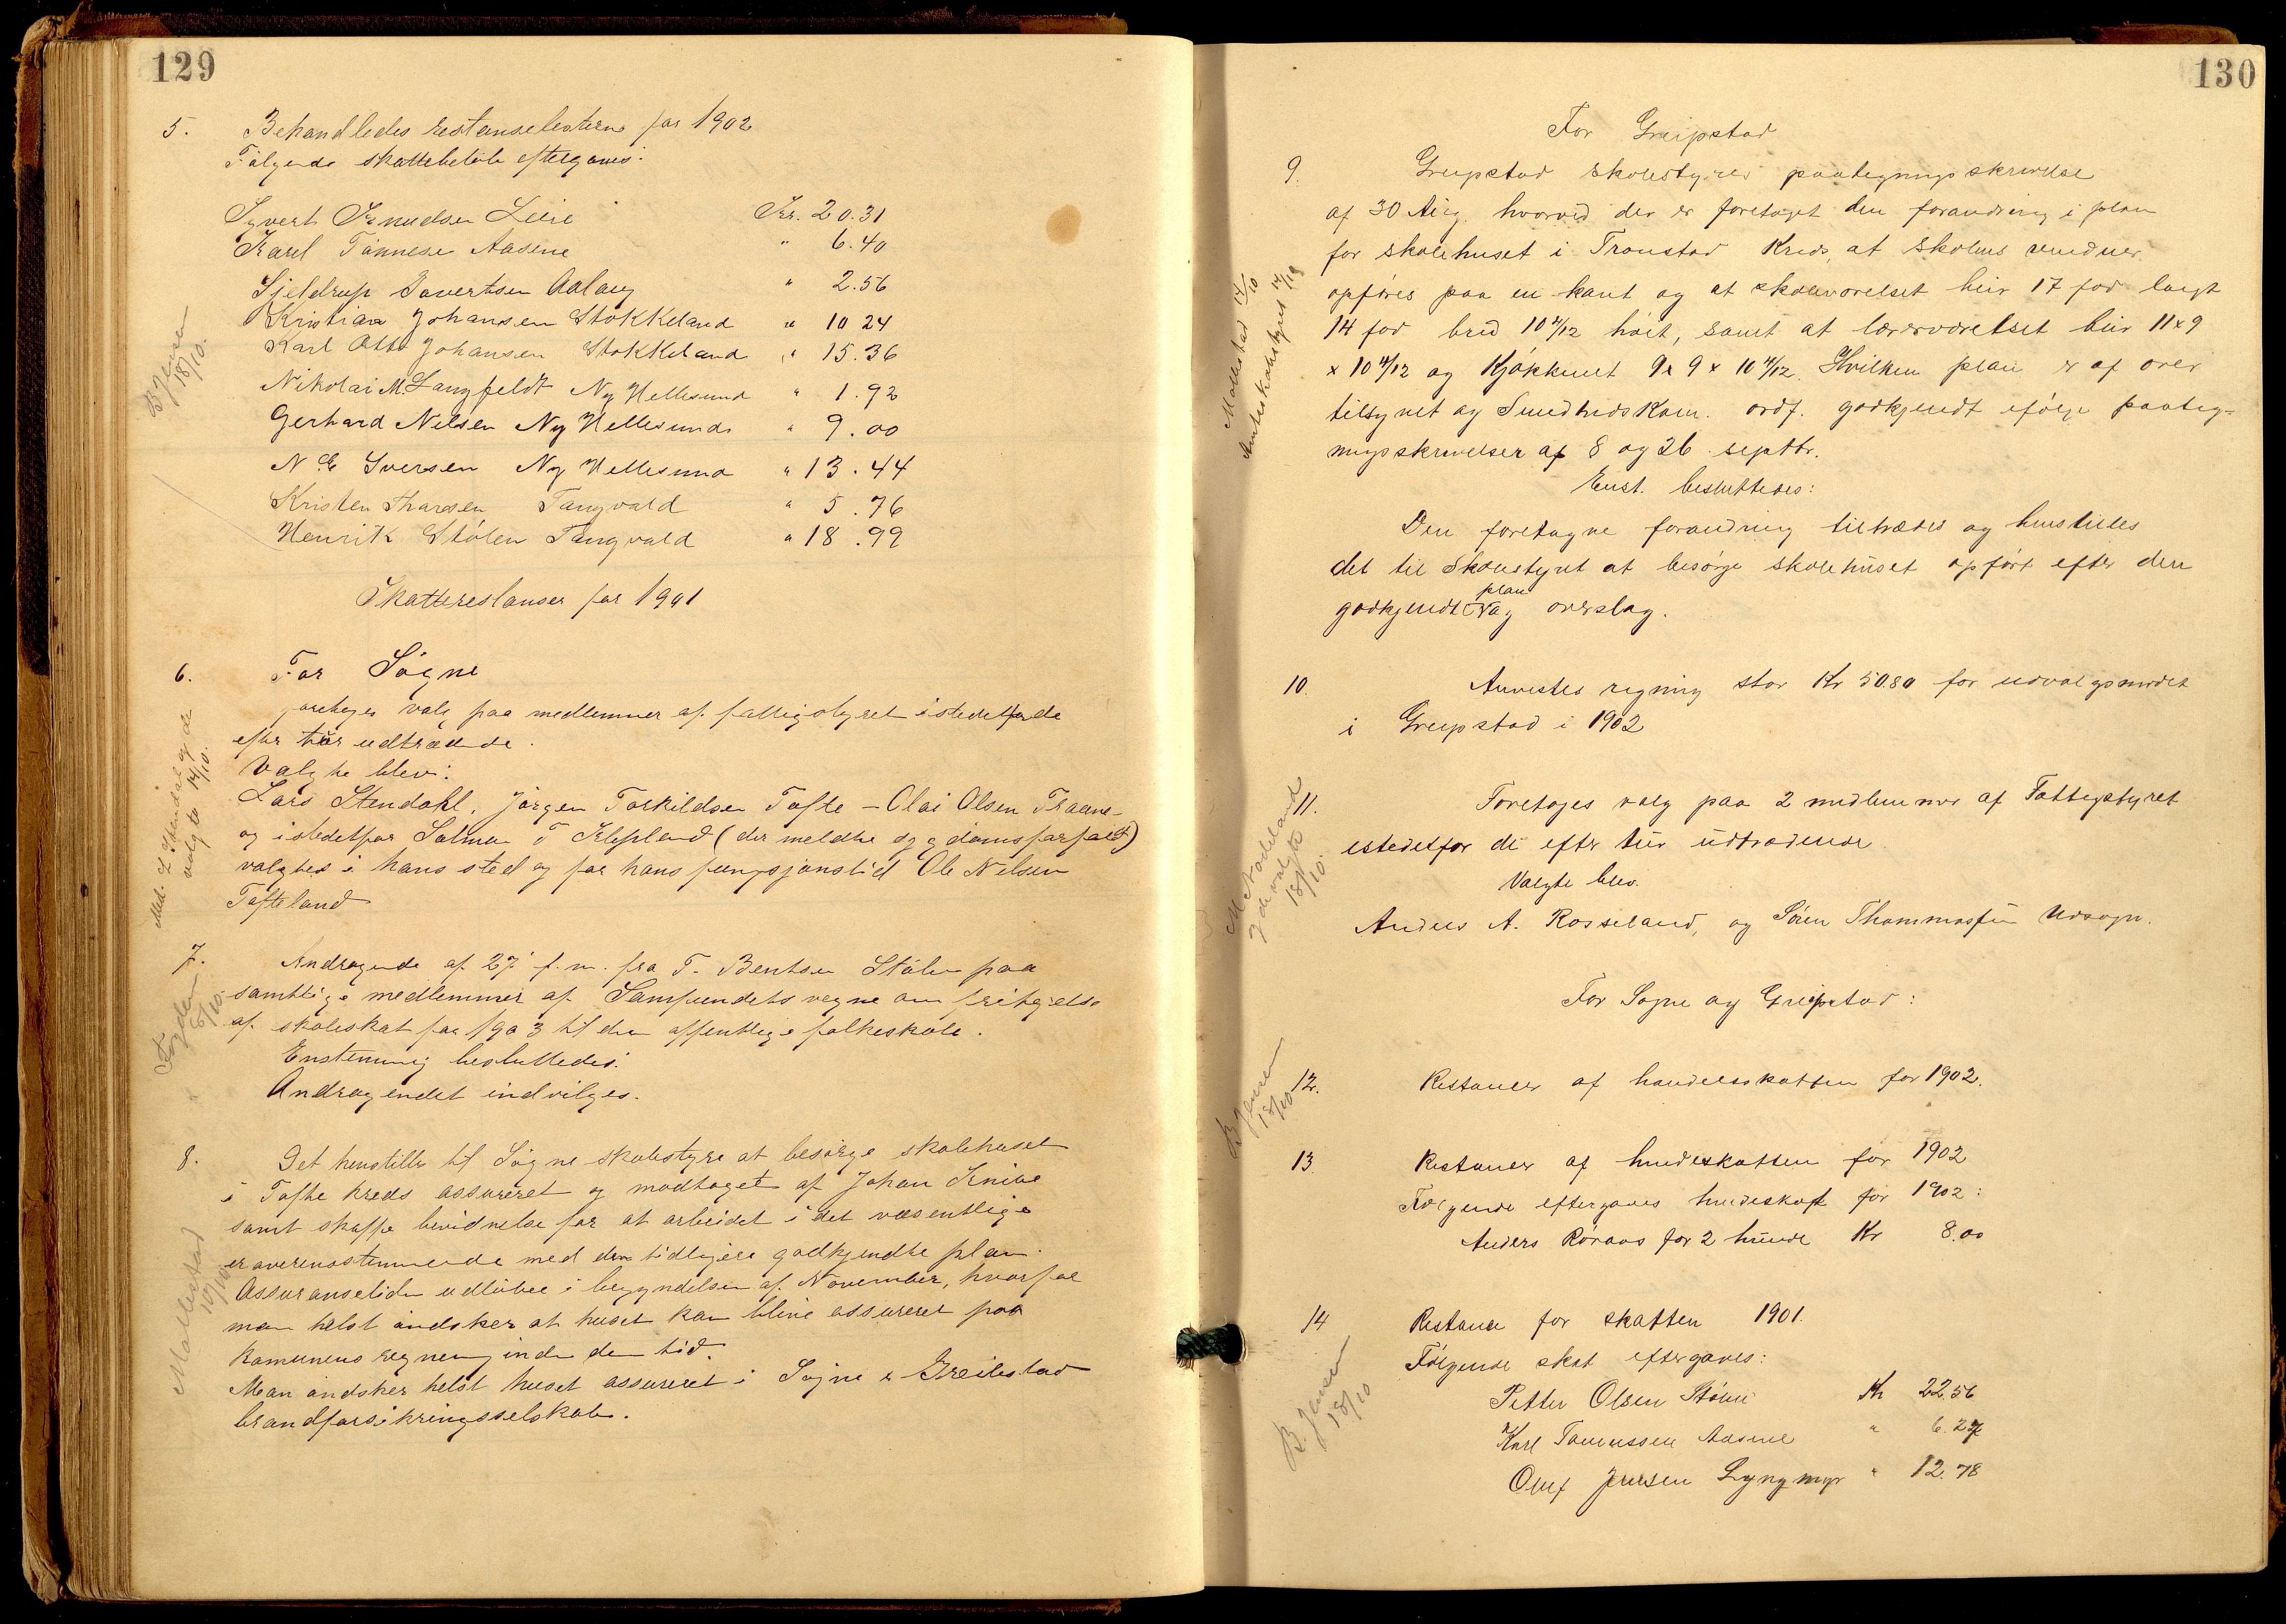 129
5. Behandledes restanselisterne for 1902
Følgende skattebeløb eftergaves:
Syvert Knudsen Leire Kr. 20.31
Karl Tønnese Aasene " 6.40
Sjeldrup Tavertsen Aalaug " 2.56
Kristian Johansen Stokkeland " 10 24
Karl Otto Johansen Stokkeland " 15.36
Nikolai M. Langfeldt Ny Hellesund " 1.92
Gerhard Nelsen Ny Hellesund " 9.00
N. E Iversen Ny Hellesund " 13.44
Kristen Tharsen Tangvald " 5.76
Henrik Stölen Tangvald " 18.99
B Jensen
18/10.
Skatterestanser for 1901
6. For Søgne
foretoges valg paa medlemmer af fattigstyret istedetfor de
efter tür udtrædende.
Valgte blev:
Lars Stendahl, Jørgen Torkildsen Tofte – Olai Olsen Traane-
og istedetfor Salmon T Klepland (der meldte sygdomsforfald)
valgtes i hans sted og for hans fungsjonstid Ole Nilsen
Tofteland
Med. L Stendal og de
valgte 14/10.
7. Andragende af 27 f.m. fra T. Bentsen Stølen paa
samtlige medlemmer af Samfundets vegne om fritagelse
af skoleskat for 1903 til den offentlige folkeskole.
Enstemmig besluttedes:
Andragendet indvilges.
Fogden
8/10.
8. Det henstilles til Søgne skolestyre at besørge skolehuset
i Tofte kreds assureret og modtaget af Johan Knive
samt skaffe bevidnelse for at arbeidet i det væsentlige
er overensstemmende med den tidligere godkjendte plan.
Assuransetiden udløber i begyndelsen af November, hvorfor
man helst ønsker at huset kan blive assureret paa
Komunens regning inden den tid.
Man ønsker helst huset assureret i Søgne & Greibstad
brandforsikringsselskab.
Møllestad
10/10
130
For Greipstad
9. Greipstad skolestyres paategningsskrivelse
af 30 Aug. hvorved der er foretaget den forandring i plan
for skolehuset i Tronstad Kreds, at skolens vinduer
opføres paa en kant og at skoleværelset blir 17 fod langt
14 fod bred 10 4/12 høit, samt at lærerværelset blir 11x9
x 10 4/12 og Kjøkkenet 9x9 x 10 4/12. Hvilken plan er af over
tilsynet og Sundhedskom. ordf. godkjendt efølge paateg-
ningsskrivelser af 8 og 26 septbr.
Enst. besluttedes:
Den foretagne forandring tiltrædes og henstilles
det til Skolestyret at besørge skolehuset opført efter den
plan
godkjendte og overslag.
Møllestad 14/10
Amtsskolestyret 14/10
10. Anvistes regning stor Kr 50.80 for udvalgsmødet
i Greipstad i 1902
11. Foretoges valg paa 2 medlemmer af Fattigstyret
istedetfor de efter tür udtrædende.
Valgte blev.
Anders A. Rosseland, og Søren Thommassen Udsogn.
og de valgte
18/10.
For Søgne og Greipstad:
12. Restancer af handelsskatten for 1902.
B Jensen
18/10
13. Restancer af hundeskatten for 1902
Følgende eftergaves hundeskat for 1902:
Anders Røraas for 2 hunde Kr 8.00
14 Restance for skatten 1901.
Følgende skat eftergaves:
Petter Olsen Stølen Kr 22.56
Karl Tønnessen Aasene " 6.27
Oluf Jensen Lyngmyr " 12.78
B. Jensen
18/10